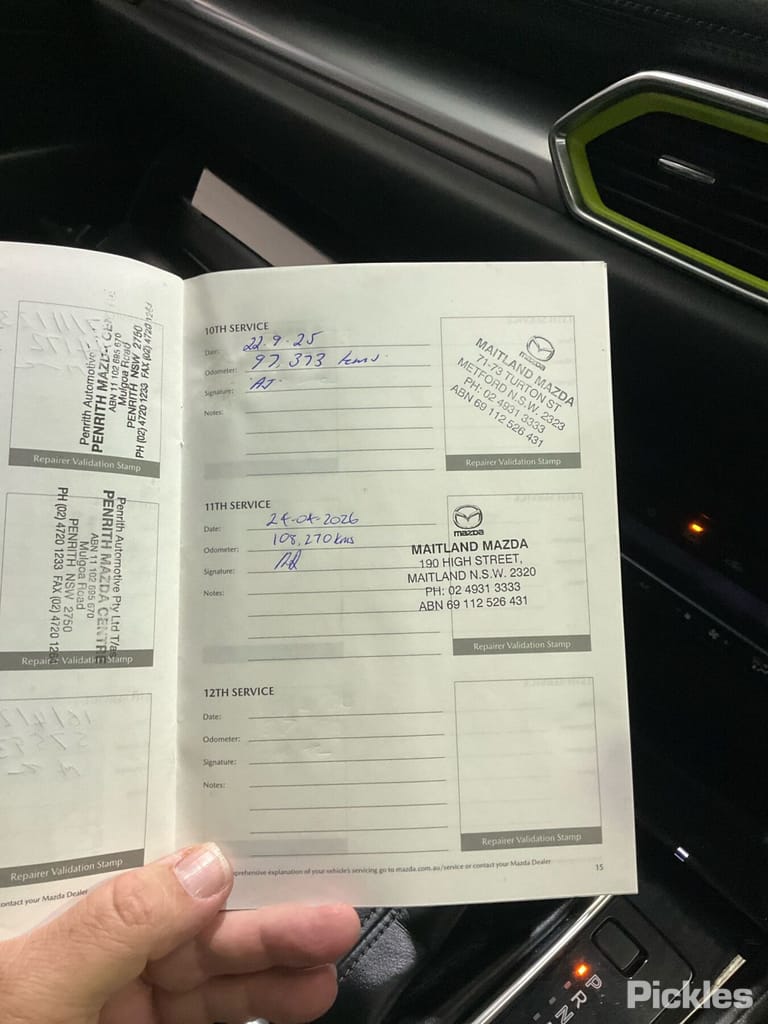 Penrith Automotive
PENRITH MAZDA CEN
ABN 11 102 695 670
Mulgoa Road
PENRITH NSW 2750
PH (02) 4720 1233 FAX (02) 4720 1264
Repairer Validation Stamp
Penrith Automotive Pty Ltd T/as
PENRITH MAZDA CENTRE
ABN 11 102 695 670
Mulgoa Road
PENRITH NSW 2750
PH (02) 4720 1233 FAX (02) 4720 126
Repairer Validation Stamp
Repairer Validation Stamp
ontact your Mazda Dealer
10TH SERVICE
Date: 22.9.25
Odometer: 97,373 kms
Signature: AJ
Notes:
mazda
MAITLAND MAZDA
71-73 TURTON ST
METFORD N.S.W. 2323
PH: 02 4931 3333
ABN 69 112 526 431
Repairer Validation Stamp
11TH SERVICE
Date: 24-04-2026
Odometer: 108,270 kms
Signature:
Notes:
mazda
MAITLAND MAZDA
190 HIGH STREET,
MAITLAND N.S.W. 2320
PH: 02 4931 3333
ABN 69 112 526 431
Repairer Validation Stamp
12TH SERVICE
Date:
Odometer:
Signature:
Notes:
Repairer Validation Stamp
prehensive explanation of your vehicle's servicing go to mazda.com.au/service or contact your Mazda Dealer
15
P
R
N
Pickles